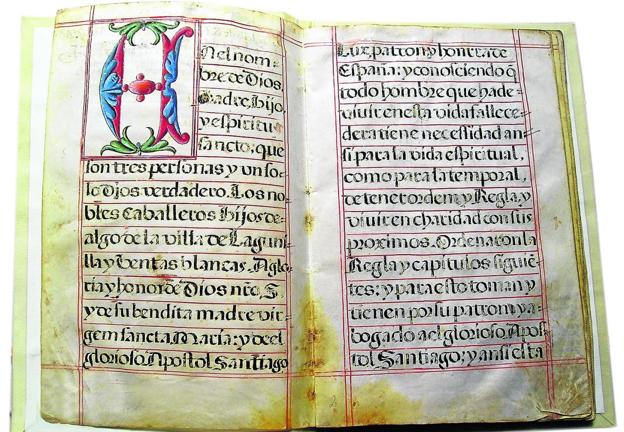 Nel nom-
bre de Dios
Padre, hijo,
y espiritu
sancto, que
son tres personas y un so-
lo Dios verdadero. Los no-
bles Caballeros hijos de-
algo de la villa de Laguni-
lla y Ventas blancas. A glo-
ria y honor de Dios nr̄o S,
y de su bendita madre vir-
gem sancta Maria: y del
glorioso Apostol Santiago
Luz, patron y honrra de
España: y conosciendo q̄
todo hombre que ha de
viuir en esta vida fallece-
dera tiene necessidad an-
si para la vida espiritual,
como para la temporal,
de tener orden, y Regla, y
viuir en charidad con sus
proximos. Ordenaron la
Regla y capitulos siguiē-
tes: y para esto toman y
tienen por su patron y a-
bogado a el glorioso Apos-
tol Santiago; y ansi esta